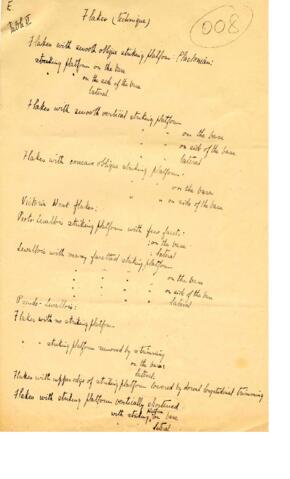 E.
Flakes (Technique)
008
Flakes with smooth oblique striking platform: Clactonian:
striking platform on the base
" " on the side of the base
lateral
Flakes with smooth vertical striking platform
" " on the base
" " on side of the base
lateral
Flakes with concave oblique striking platform.
" on the base
" " on side of the base
Victoria West flakes:
Proto Levallois striking platform with few facets:
: on the base
: lateral
Levallois with many facetted striking platform
" " " " on the base
" " " " on side of the base
lateral
Pseudo-Levallois:
Flakes with no striking platform
" " striking platform removed by trimming
on the base
lateral
Flakes with upper edge of striking platform lowered by dorsal longitudinal trimming
Flakes with striking platform vertically shortened
with striking platform on base
lateral